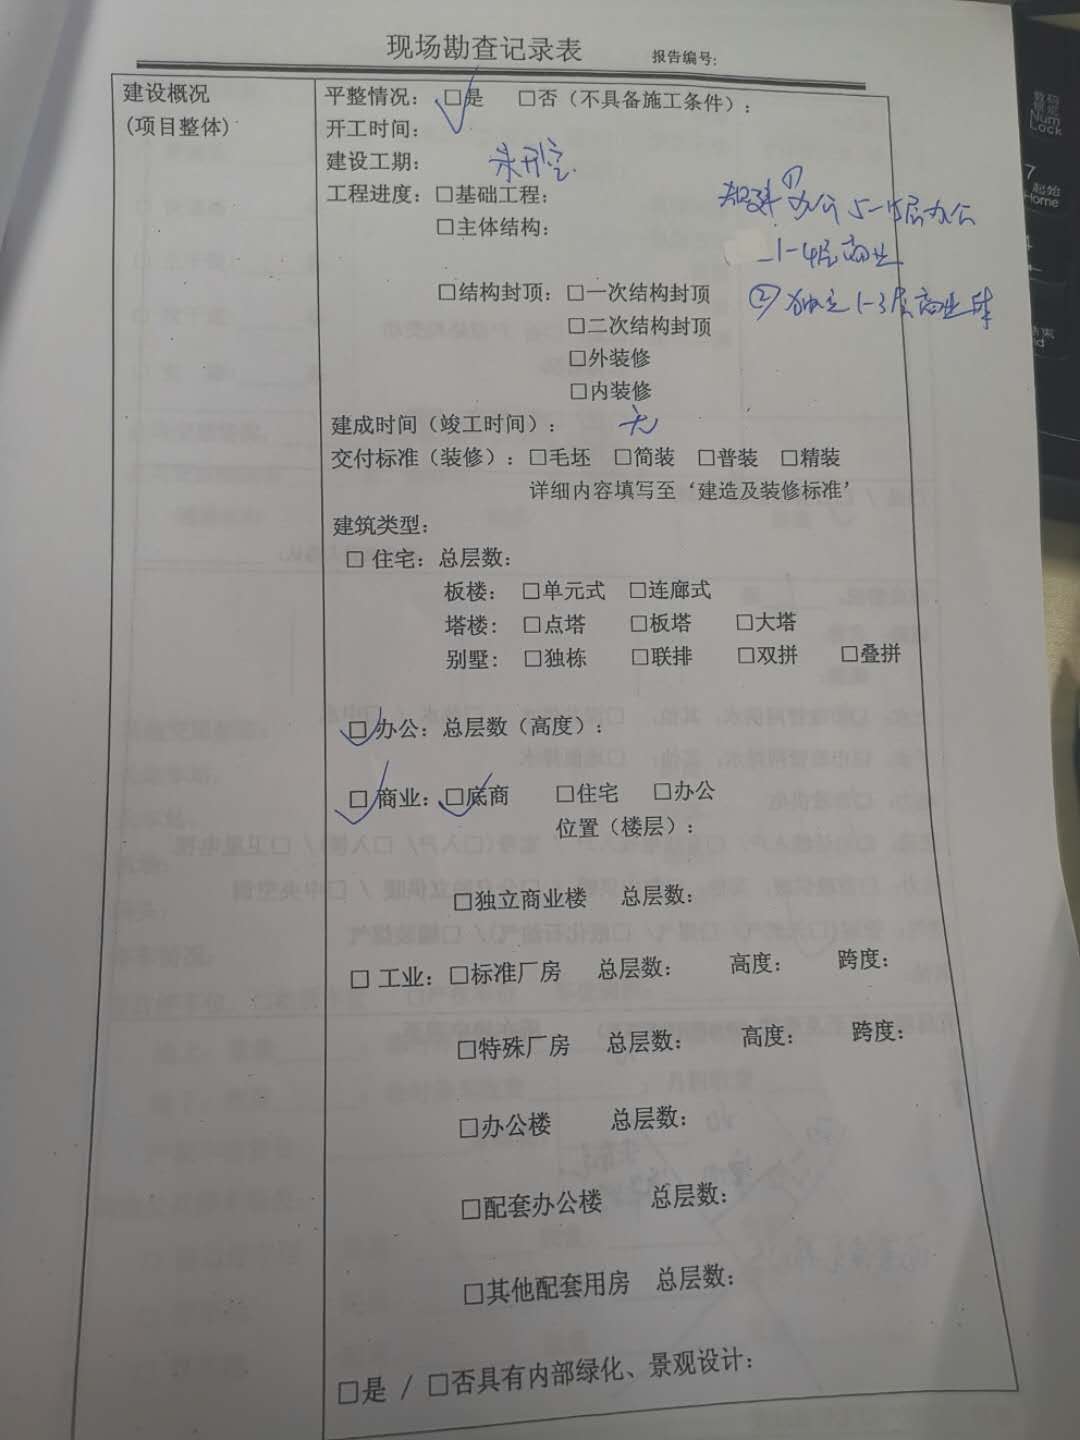 现场勘查记录表 报告编号:
建设概况
(项目整体)
平整情况: □是 □否（不具备施工条件）:
开工时间:
建设工期:
未开挖.
工程进度: □基础工程:
□主体结构:
① 办公 5-15层办公
1-4层商业
② 独立1-3层商业楼
□结构封顶: □一次结构封顶
□二次结构封顶
□外装修
□内装修
建成时间（竣工时间）: 无
交付标准（装修）: □毛坯 □简装 □普装 □精装
详细内容填写至‘建造及装修标准’
建筑类型:
□ 住宅: 总层数:
板楼: □单元式 □连廊式
塔楼: □点塔 □板塔 □大塔
别墅: □独栋 □联排 □双拼 □叠拼
□办公: 总层数（高度）:
□ 商业: □底商 □住宅 □办公
位置（楼层）:
□独立商业楼 总层数:
□ 工业: □标准厂房 总层数: 高度: 跨度:
□特殊厂房 总层数: 高度: 跨度:
□办公楼 总层数:
□配套办公楼 总层数:
□其他配套用房 总层数:
□是 / □否具有内部绿化、景观设计:
Num
Lock
7 起始
Home